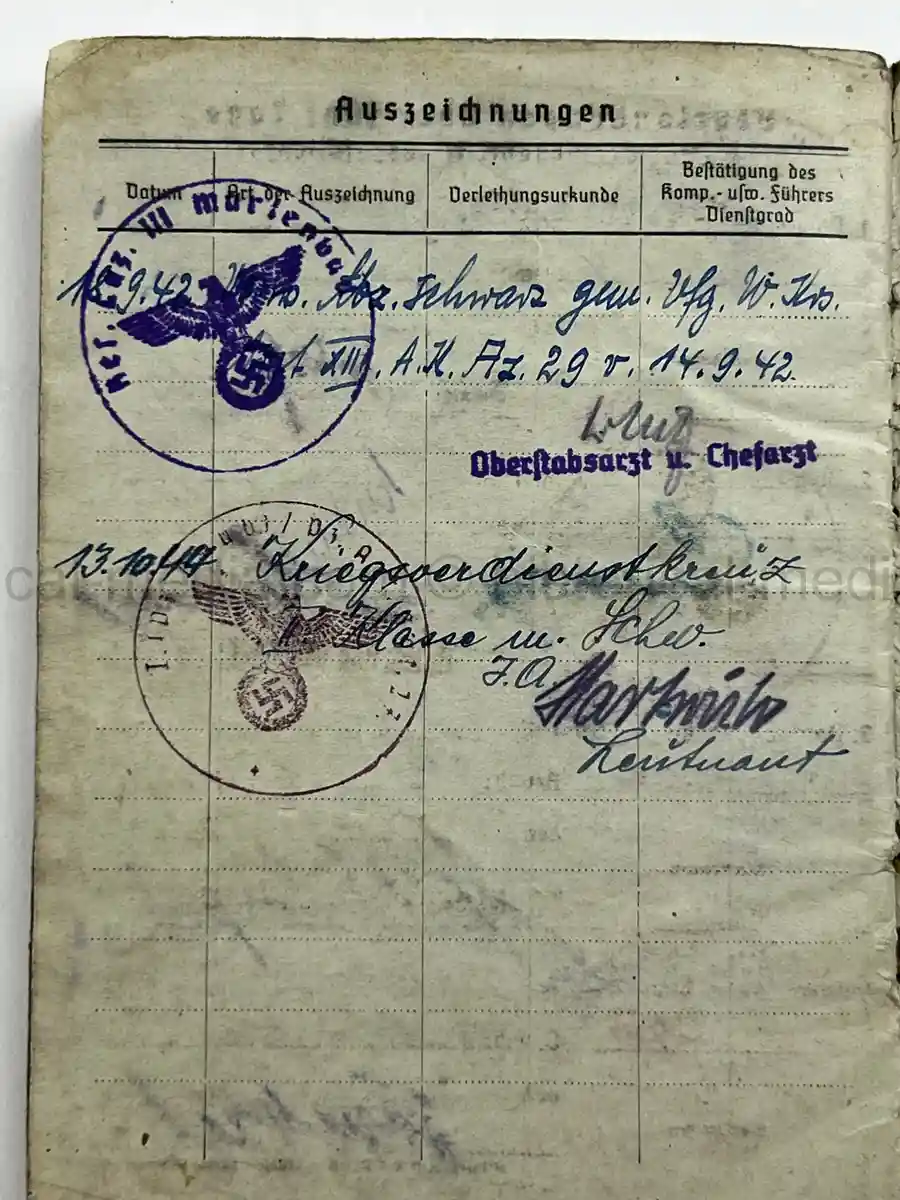 Auszeichnungen
Datum Art der Auszeichnung Verleihungsurkunde Bestätigung des Komp.- usw. Führers Dienstgrad
Res. Laz. III Marienba
9.42 Abz. Schwarz gem. Vfg. W. Krs.
XIII. A.K. Az. 29 v. 14.9.42.
Oberstabsarzt u. Chefarzt
13.10.44 Kriegsverdienstkreuz
II. Klasse m. Schw.
I.A.
Leutnant